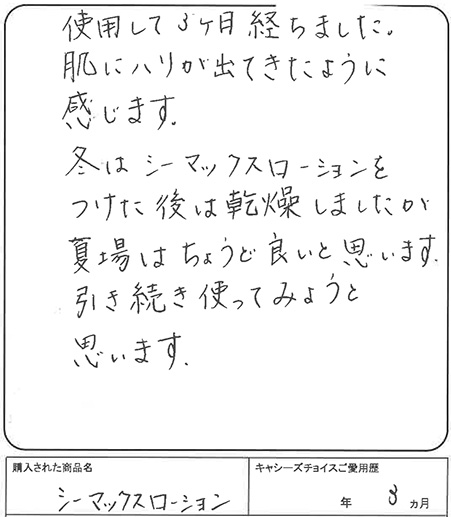 使用して3ヶ月経ちました。
肌にハリが出てきたように
感じます。
冬はシーマックスローションを
つけた後は乾燥しましたが
夏場はちょうど良いと思います。
引き続き使ってみようと
思います。
購入された商品名
キャシーズチョイスご愛用歴
シーマックスローション
年 3 カ月